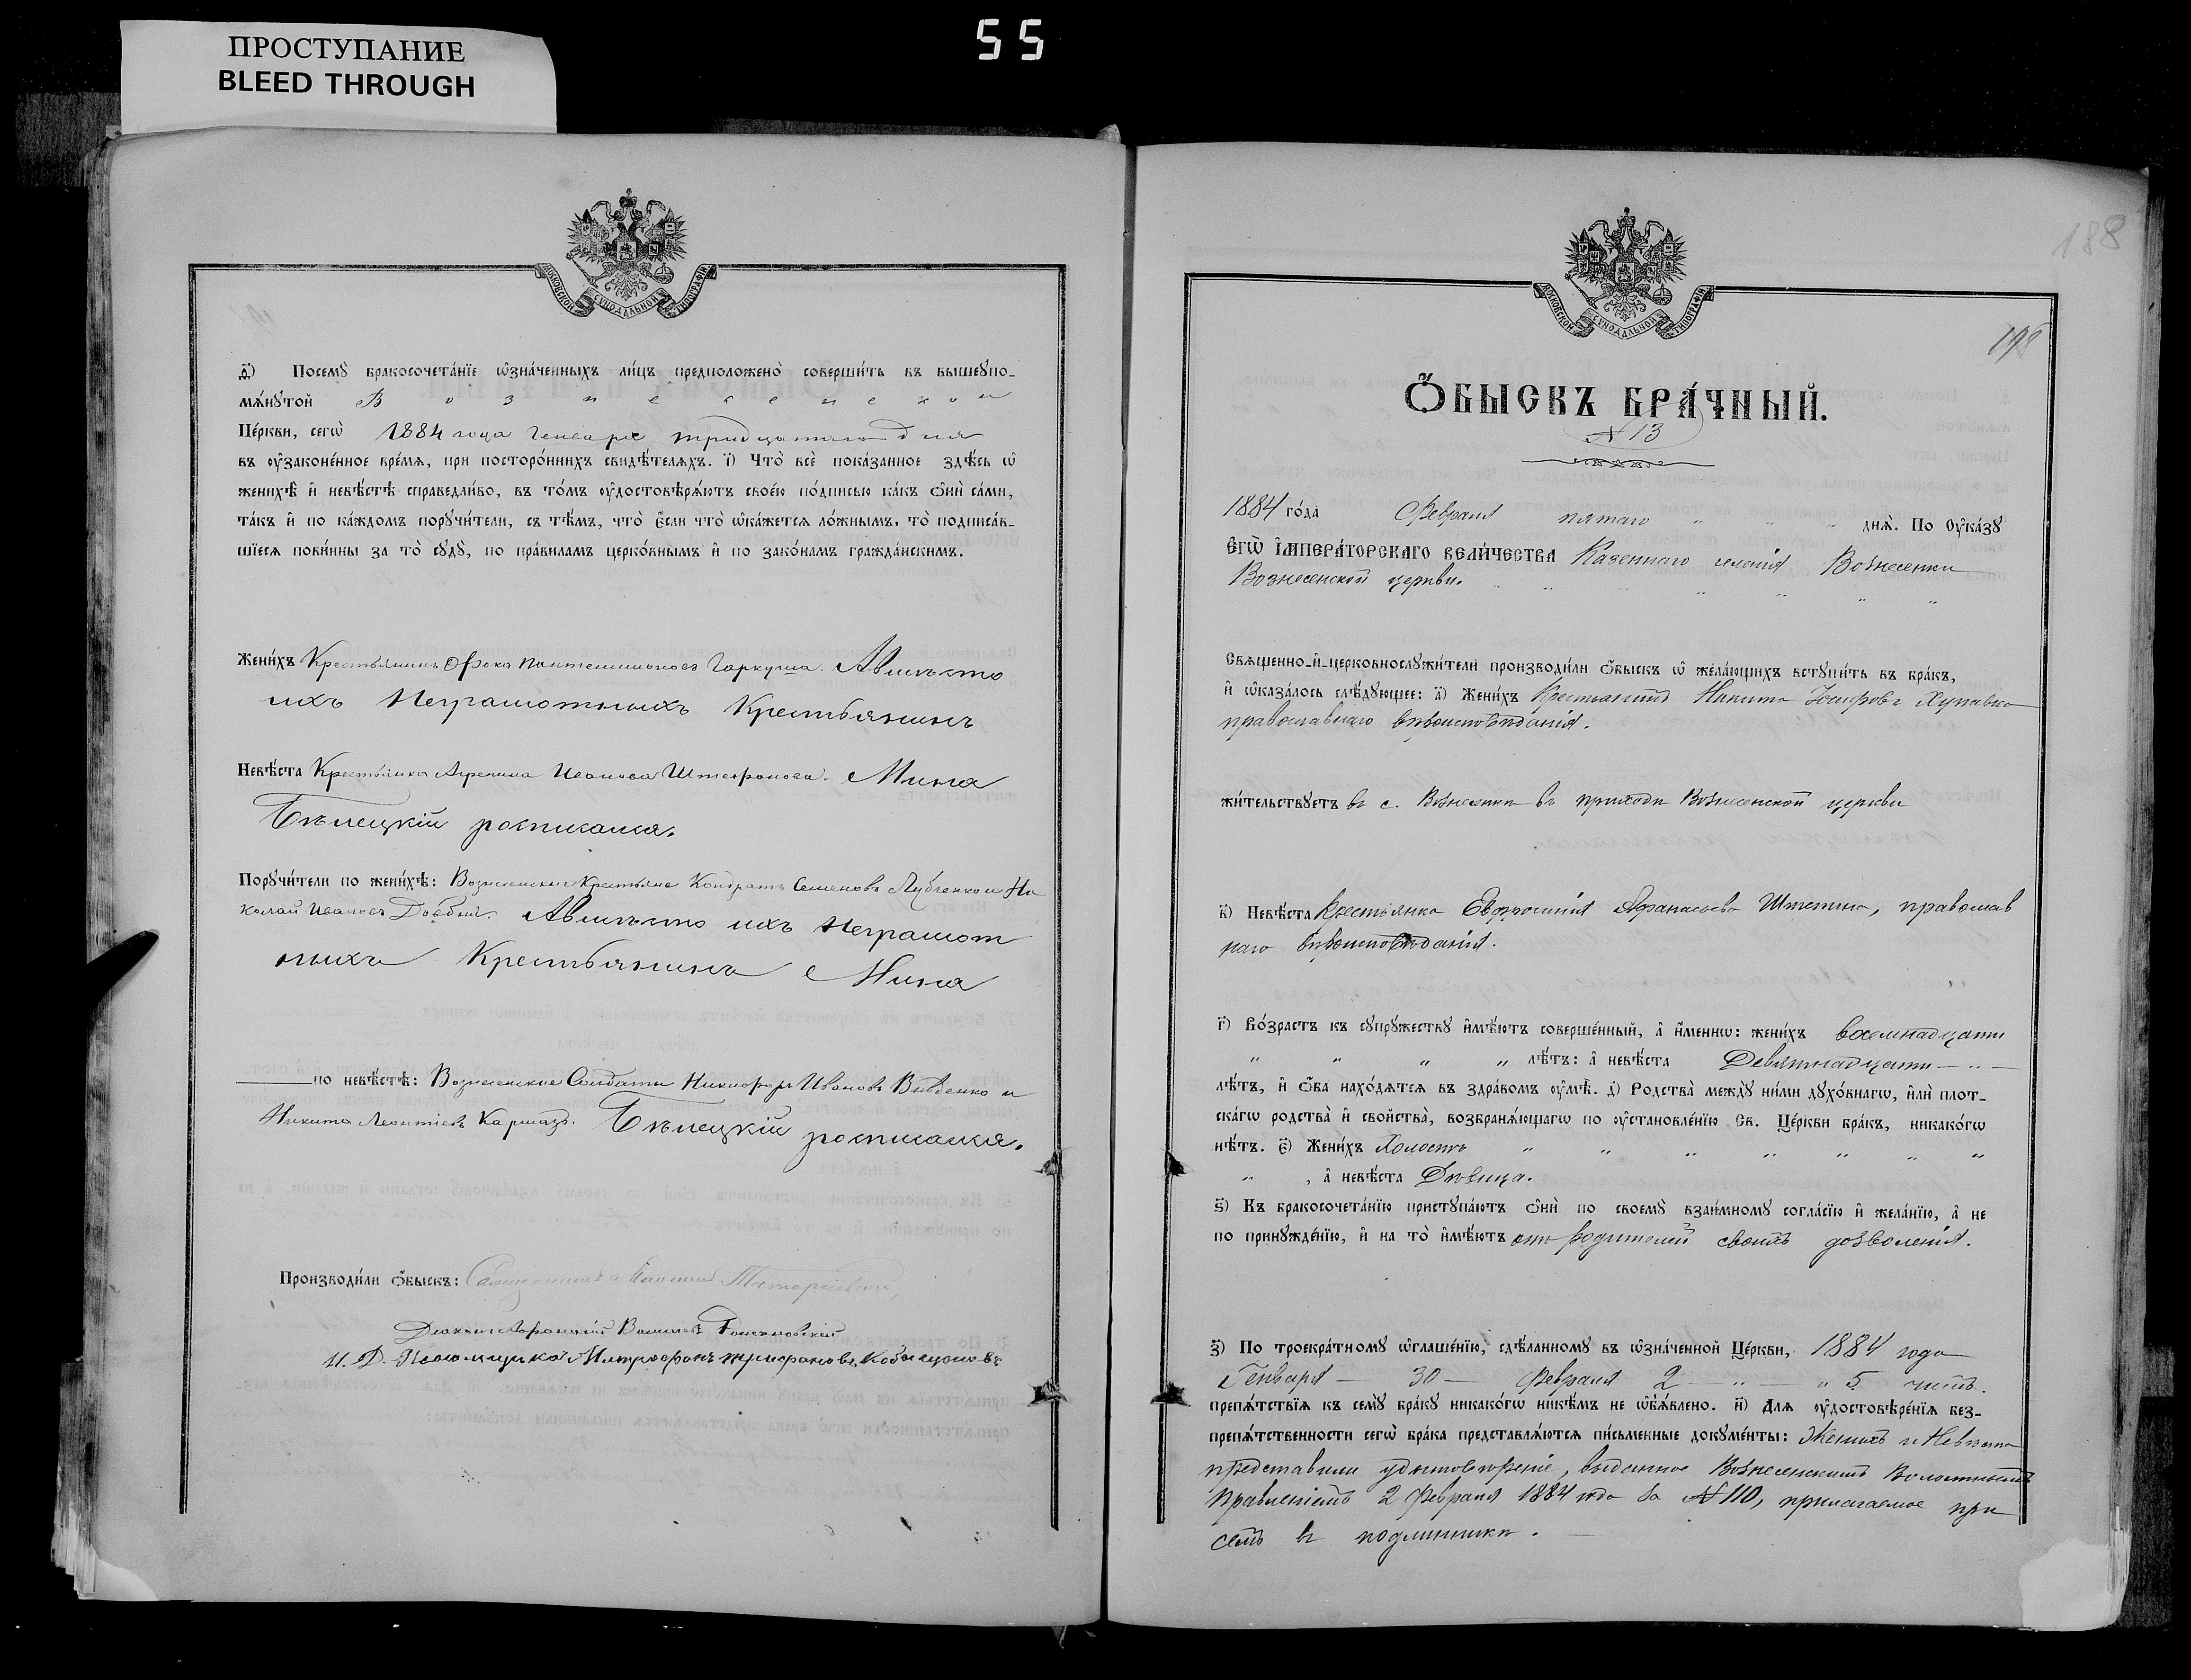 ПРОСТУПАНИЕ
BLEED THROUGH
55
МОСКОВСКОЙ СѴНОДАЛЬНОЙ ТИПОГРАФІИ
ѳ҃) Посемꙋ̀ бракосочета́нїе ѡ҆зна́ченныхъ ли́цъ предположено̀ соверши́ть въ вышеꙋпо-
мѧ́нꙋтой Вознесенской
Це́ркви, сегѡ̀ 1884 года Генваря тридцатаго дня
въ ᲂу҆законе́нное вре́мѧ, при посторо́ннихъ свидѣ́телѧхъ. і҃) Что̀ всѐ пока́занное здѣ́сь ѡ҆
женихѣ̀ и҆ невѣ́стѣ справедли́во, въ то́мъ ᲂу҆достовѣрѧ́ютъ свое́ю по́дписью ка́къ ѻ҆нѝ са́ми,
та́къ и҆ по ка́ждомъ порꙋчи́тели, съ тѣ́мъ, что̀ є҆́сли что̀ ѡ҆ка́жетсѧ ло́жнымъ, то̀ подписа́в-
шїесѧ пови́нны за то̀ сꙋдꙋ̀, по пра́виламъ церко́внымъ и҆ по зако́намъ гражда́нскимъ.
Жени́хъ Крестьянинъ Фока Пантелимоновъ Гаркуша. А вмѣсто
ихъ Неграмотныхъ Крестьянинъ
Невѣ́ста Крестьянка Агрепина Иванова Штефанова. Мина
Бѣлецкій росписался.
Порꙋчи́тели по женихѣ̀: Вознесенские Крестьяне Кондратъ Семеновъ Лубченко и Ни
колай Ивановъ Довбня. А вмѣсто ихъ неграмот
ныхъ Крестьянинъ Мина
по невѣ́стѣ: Вознесенские Солдаты Никифоръ Ивановъ Вивденко и
Никита Леонтіевъ Кармазъ. Бѣлецкій росписался.
Производи́ли ѻ҆́быскъ: Священникъ
Діаконъ Василевъ
И. Д. Псаломщика Митрофанъ Трифановъ
188
МОСКОВСКОЙ СѴНОДАЛЬНОЙ ТИПОГРАФІИ
198
Ѻ҆́БЫСКЪ БРА́ЧНЫЙ.
№ 13
1884 го́да Февраля пятаго днѧ̀. По ᲂу҆ка́зꙋ
Є҆гѡ̀ И҆мпера́торскагѡ вели́чества Казеннаго селенія Вознесенки
Вознесенской церкви.
Свѧще́нно-и҆-церковнослꙋжи́тели производи́ли ѻ҆́быскъ ѡ҆ жела́ющихъ встꙋпи́ть въ бра́къ,
и҆ ѡ҆каза́лось слѣ́дꙋющее: а҃) Жени́хъ Крестьянинъ Никита Іосифовъ Хупавка
православнаго вѣроисповѣданія.
жи́тельствꙋетъ въ с. Вознесенки въ приходѣ Вознесенской церкви
в҃) Невѣ́ста Крестьянка Евфросинія Афанасьева Штепина, православ
наго вѣроисповѣданія.
г҃) Во́зрастъ къ сꙋпрꙋ́жествꙋ и҆мѣ́ютъ соверше́нный, а҆ и҆́меннѡ: жени́хъ восемнадцати
лѣ́тъ: а҆ невѣ́ста Девятнадцати
лѣ́тъ, и҆ ѻ҆́ба нахо́дѧтсѧ въ здра́вомъ ᲂу҆мѣ̀. д҃) Родства̀ междꙋ̀ ни́ми дꙋхо́внагѡ, и҆лѝ плот-
ска́гѡ родства̀ и҆ сво́йства̀, возбранѧ́ющагѡ по ᲂу҆становле́нїю Св. Це́ркви бра́къ, никако́гѡ
нѣ́тъ. є҃) Жени́хъ Холостъ
, а҆ невѣ́ста Дѣвица.
ѕ҃) Къ бракосочета́нїю пристꙋпа́ютъ ѻ҆нѝ по своемꙋ̀ взаи́мномꙋ согла́сїю и҆ жела́нїю, а҆ не
по принꙋжде́нїю, и҆ на то̀ и҆мѣ́ютъ отъ родителей своихъ дозволенія.
з҃) По троекра́тномꙋ ѡ҆глаше́нїю, сдѣ́ланномꙋ въ ѡ҆зна́ченной Це́ркви, 1884 года
Генваря 30 Февраля 2 5 числъ.
препѧ́тствїѧ къ семꙋ̀ бра́кꙋ никако́гѡ никѣ́мъ не ѡ҆б̾ѧ́влено. и҃) Длѧ ᲂу҆достовѣре́нїѧ без-
препѧ́тственности сегѡ̀ бра́ка представлѧ́ютсѧ пи́сьменные докꙋме́нты: Женихъ и Невѣста
представили удостовѣреніе, выданное Вознесенскимъ Волостнымъ
Правленіемъ 2 Февраля 1884 года за № 110, прилагаемое при
семъ въ подлинникѣ.